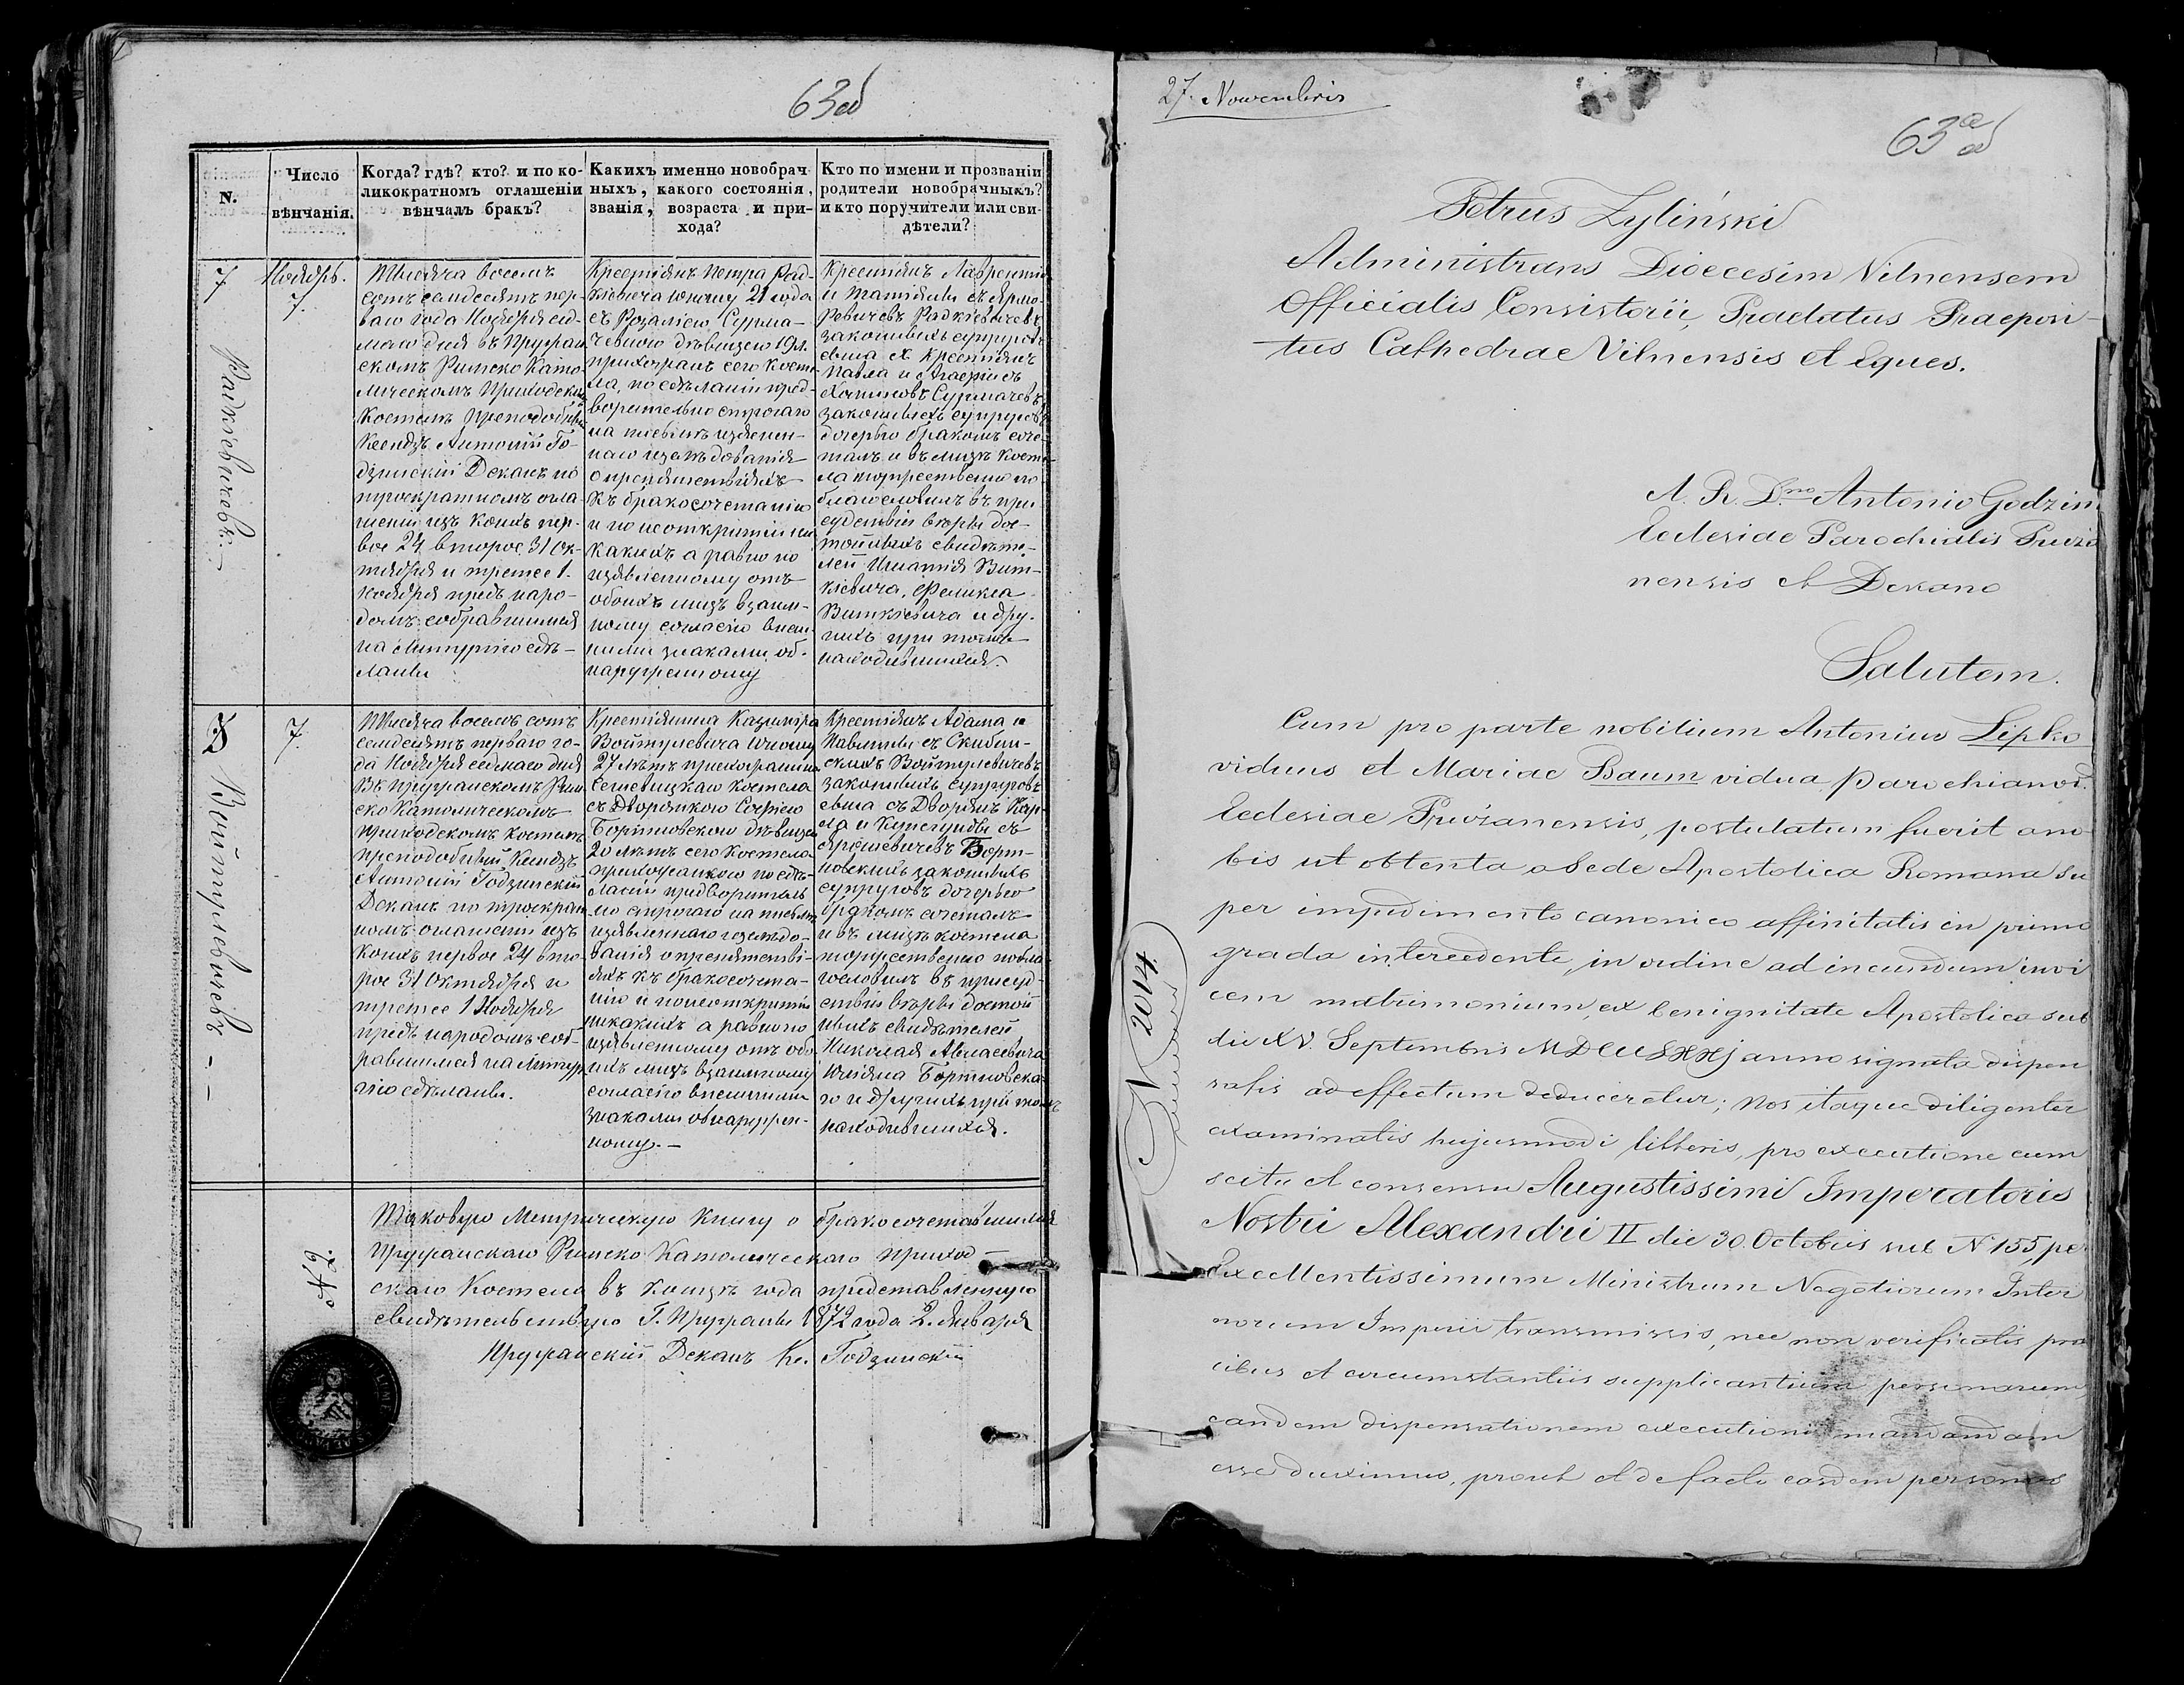 63об
N.
Число
вѣнчанія.
Когда? гдѣ? кто? и по ко-
ликократномъ оглашеніи
вѣнчалъ бракъ?
Какихъ именно новобрач-
ныхъ, какого состоянія,
званія, возраста и при-
хода?
Кто по имени и прозваніи
родители новобрачныхъ?
и кто поручители или сви-
дѣтели?
7
Радкевичевъ.-
Ноябрь.
7.
Тысяча восемь
сотъ семдесятъ пер-
ваго года Ноября сед-
маго дня въ Пружан
скомъ Римско Като-
лическомъ Приходском
Костелѣ преподобный
Ксендзъ Антоній Го-
дзинскій Деканъ по
троекратномъ огла-
шеніи изъ коихъ пер-
вое 24. второе 31 Ок-
тября и третее 1.
Ноября предъ наро-
домъ собравшимся
на Литургію сдѣ-
ланы
Крестьянъ Петра Рад-
кіевича юношу 21 года
съ Розаліею Сурма-
чевною дѣвицею 19 л.
прихожанъ сего косте
ла, по сдѣланіи пред-
ворительно строгаго
на письмѣ изъясен-
наго изслѣдованія
о препятствіяхъ
къ бракосочетанію
и по неоткрытіи ни
какихъ а равно по
изъявленному отъ
обоихъ лицъ взаим-
ному согласію внеш-
ними знаками об-
наруженному
Крестьянъ Лаврентія
и Татіяны съ Ярмо-
ровичевъ Радкіевичевъ
законныхъ супруговъ
сына съ крестьянъ
Павла и Агафіи съ
Сурмачевъ
законныхъ супруговъ
дочерью бракомъ соче-
талъ и въ лицѣ косте-
ла торжественно по
благословилъ въ при
судствіи вѣры дос-
тойныхъ свидѣте-
лей Игнатія Вит-
кіевича, Феликса
Виткіевича и дру-
гихъ при томъ
находившихся.
8
Войтулевичевъ -
7.
Тысяча восемь сотъ
семдесятъ перваго го-
да Ноября седмаго дня
Въ Пружанскомъ Рим
ско Католическомъ
приходскомъ костелѣ
преподобный Ксендзъ
Антоній Годзинскій
Деканъ по троекрат
номъ оглашеніи изъ
коихъ первое 24 вто-
рое 31 Октября и
третее 1 Ноября
предъ народомъ соб-
равшимся на Литур
гію сдѣланы.
Крестьянина Казиміра
Войтулевича юношу
27 лѣтъ прихожанина
Селевицкаго костела
съ Дворянкою Софіею
Бортновскою дѣвицею
20 лѣтъ сего костела
прихожанкою по сдѣ-
ланіи предворитель
но строгаго на письмѣ
изъявленнаго изслѣдо-
ванія о препятстві-
яхъ къ бракосочета-
нію и по неоткрытіи
никакихъ а равно по
изъявленному отъ обо
ихъ лицъ взаимному
согласію внешними
знаками обнаружен-
ному. -
Крестьянъ Адама и
Павлины съ Скибин-
скихъ Войтулевичевъ
законныхъ супруговъ
сына съ Дворянъ Кар-
ла и Кунегунды съ
Ярошевичевъ Борт-
новскихъ законныхъ
супруговъ дочерью
бракомъ сочеталъ
и въ лицѣ костела
торжественно побла
гословилъ въ присуд-
ствіи вѣры достой
ныхъ свидѣтелей
Николая
Юліяна Бортновска-
го и другихъ при томъ
находившихся.
№ 2.
Таковую Метрическую Книгу о бракосочетавшихся
Пружанскаго Римско Католическаго Приход-
скаго Костела въ концѣ года представленную
свидѣтельствую Г. Пружаны 1872 года 2. Января
Пружанскій Деканъ Кс. Годзинскій
27. Nowembris
63а об
Petrus Żyliński
Administrans Dioecesim Vilnensem
Officialis Consistorii, Praelatus Praeposi-
tus Cathedrae Vilnensis et Eques.
A. R. Dno Antonio Godzin
Ecclesiae Parochialis Pruża
nensis et Decano
Salutem.
Cum pro parte nobilium Antonius Lipko
viduus et Mariae Baum vidua parochianor.
Ecclesiae Prużanensis, postulatum fuerit a no
bis ut obtenta a Sede Apostolica Romana Su
per impedimento canonico affinitatis in primo
gradu intercedente, in ordine ad ineundum invi
cem matrimonium, ex benignitate Apostolica sub
die XV. Septembris MDCCCLXXj anno signata dispen
satis ad effectum deduceretur; Nos itaque diligenter
examinatis hujusmodi litteris, pro executione cum
scitu et consensu Augustissimi Imperatoris
Nostri Alexandri II die 30. Octobris sub N 155, per
Excellentissimum Ministrum Negotiorum Inter
norum Imperii transmissis, nec non verificatis pre
cibus et circumstantiis supplicantium personarum,
eandem dispensationem executioni mandandam
esse duximus, prout et de facto easdem personas
N 2014.